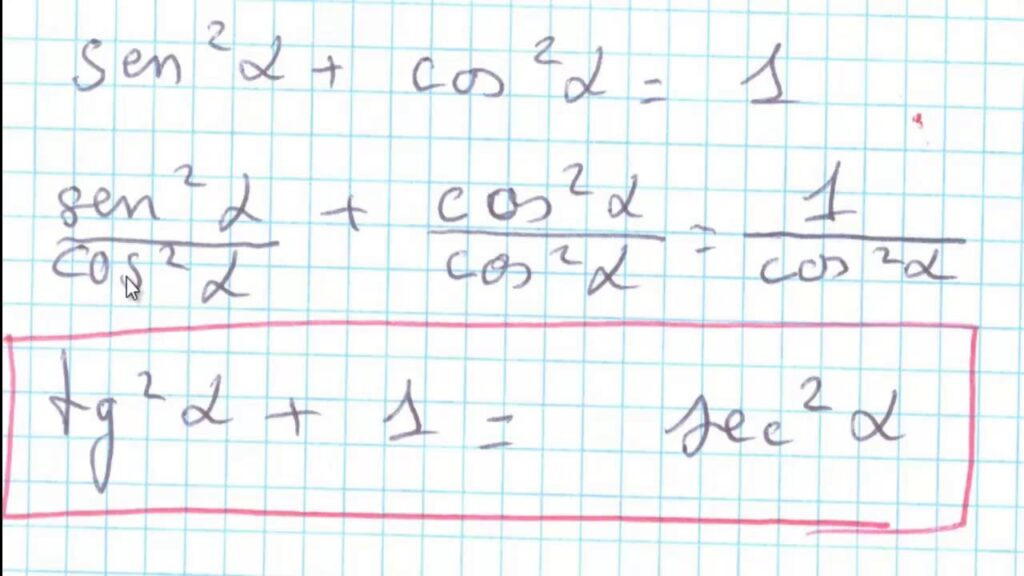 sen²α + cos²α = 1
sen²α/cos²α + cos²α/cos²α = 1/cos²α
tg²α + 1 = sec²α